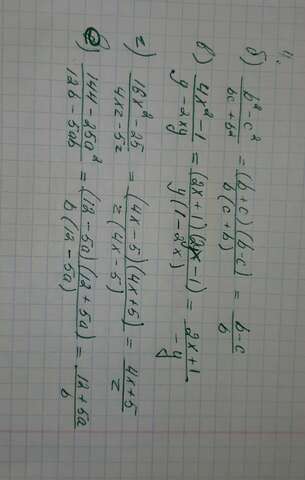 4.
б) b²-c²/bc+b² = (b+c)(b-c)/b(c+b) = b-c/b
в) 4x²-1/y-2xy = (2x+1)(2x-1)/y(1-2x) = 2x+1/-y
г) 16x²-25/4xz-5z = (4x-5)(4x+5)/z(4x-5) = 4x+5/z
е) 144-25a²/12b-5ab = (12-5a)(12+5a)/b(12-5a) = 12+5a/b